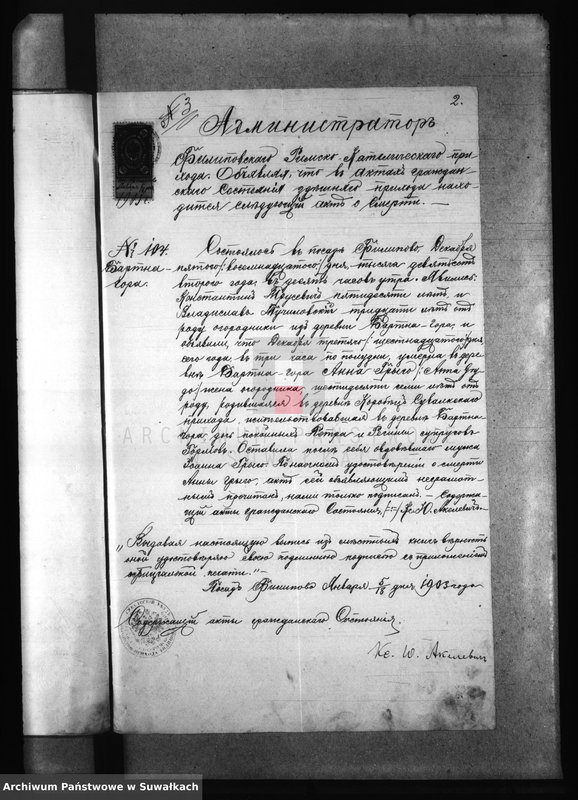 № 3
2.
Администраторъ
Филиповскаго Римско-Католическаго при-
хода. Объявляя, что въ Актахъ граждан-
скаго Состоянія здѣшняго прихода нахо-
дится слѣдующій актъ о Смерти. —
№ 104.
Бартна-
гора.
Состоялось въ посадѣ Филипово, Декабря
пятаго /восемнадцатаго/ дня, тысяча девятьсотъ
второго года, въ десять часовъ утра. Явились:
Константинъ пятидесяти лѣтъ и
Владиславъ тридцати лѣтъ отъ
роду огородники изъ деревни Бартна-Гора, и
объявили, что Декабря третьяго /шестнадцатаго/ дня
сего года въ три часа по полудни, умерла въ дерев-
нѣ Бартна-гора Анна Грыго /
жена огородника, шестидесяти семи лѣтъ отъ
роду, родившаяся въ деревнѣ Коробецъ Сувалкскаго
прихода, жительствовавшая въ деревнѣ Бартна
гора, дочь покойныхъ Петра и Регины супруговъ
Оставила послѣ себя овдовѣвшаго мужа
Грыго. По настоящемъ удостовѣреніи о смерти
Анны Грыго, актъ сей объявляющимъ неграмот-
нымъ прочитанъ, нами только подписанъ. — Содержа-
щій акты гражданскаго Состоянія, /-/ Кс. Ю. Акелевичъ.
„Выдавая настоящую выпись изъ мѣстныхъ книгъ вѣрность
оной удостовѣряю своею подлинною подписью съ приложеніемъ
оффиціальной печати.“ —
Посадъ Филипово Января 5/18 дня 1903 года
Содержащій акты гражданскаго Состоянія.
Кс. Ю. Акелевичъ
Archiwum Państwowe w Suwałkach